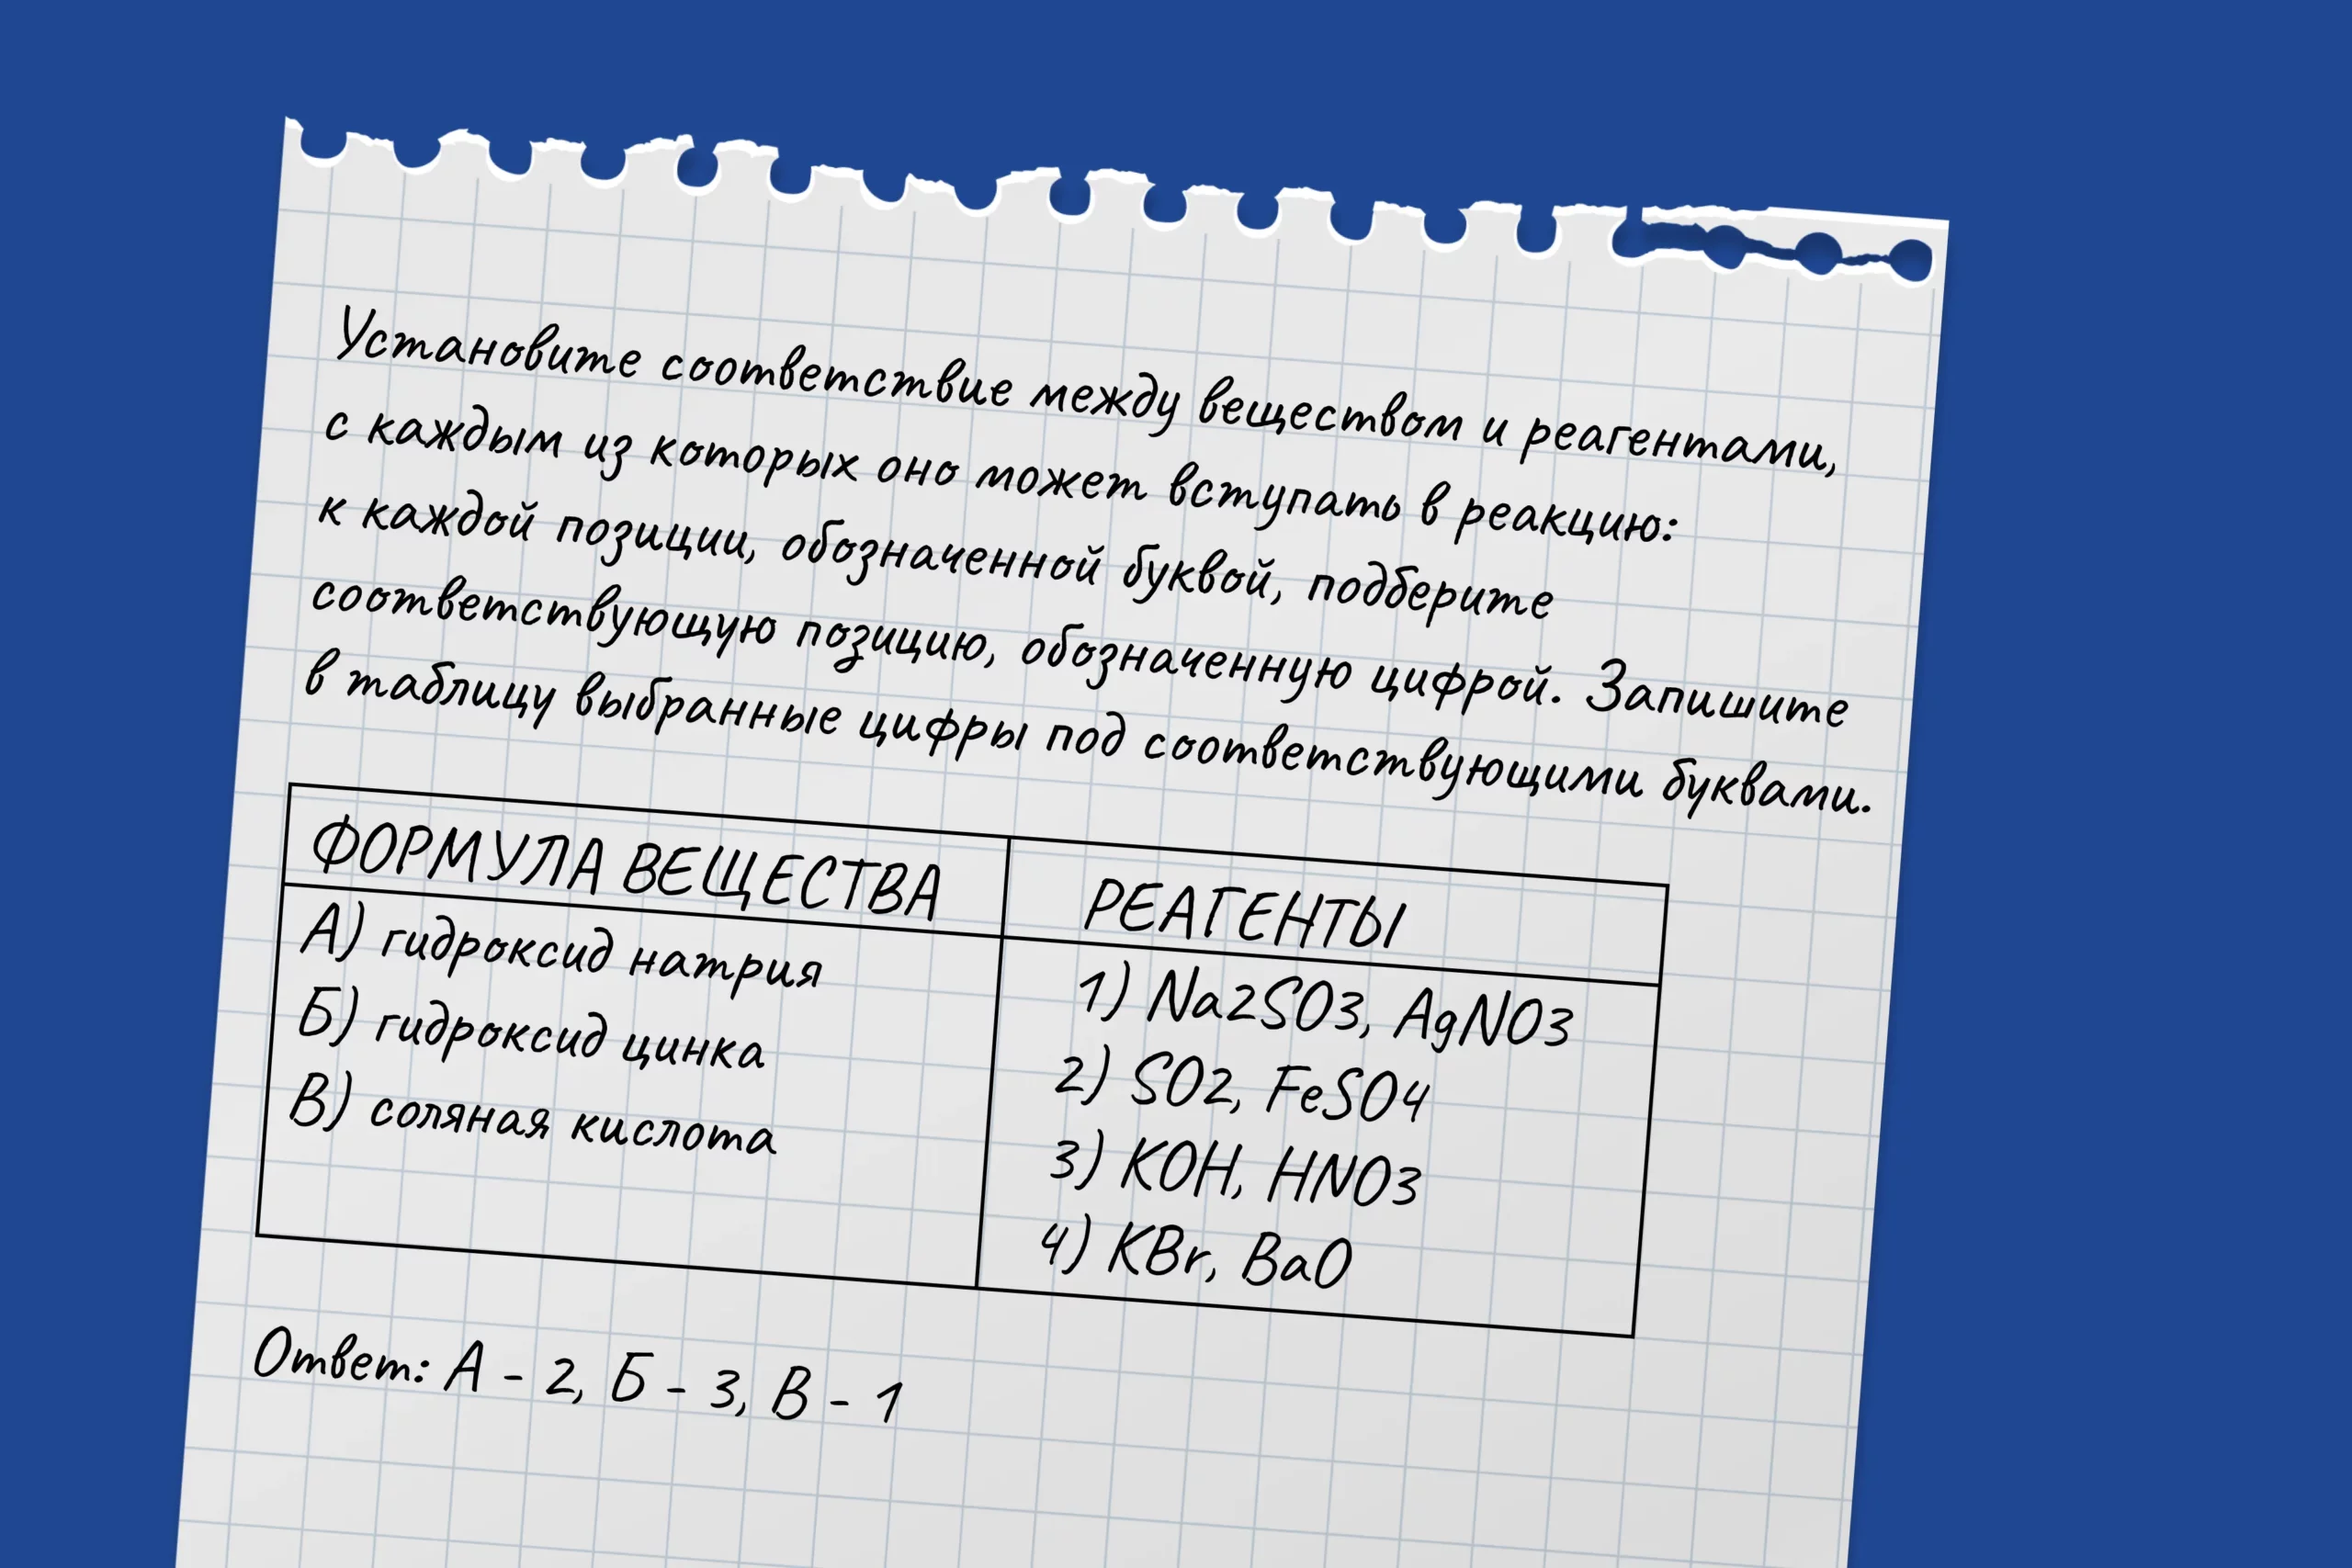 Установите соответствие между веществом и реагентами,
с каждым из которых оно может вступать в реакцию:
к каждой позиции, обозначенной буквой, подберите
соответствующую позицию, обозначенную цифрой. Запишите
в таблицу выбранные цифры под соответствующими буквами.
ФОРМУЛА ВЕЩЕСТВА
РЕАГЕНТЫ
А) гидроксид натрия
Б) гидроксид цинка
В) соляная кислота
1) Na2SO3, AgNO3
2) SO2, FeSO4
3) KOH, HNO3
4) KBr, BaO
Ответ: А - 2, Б - 3, В - 1